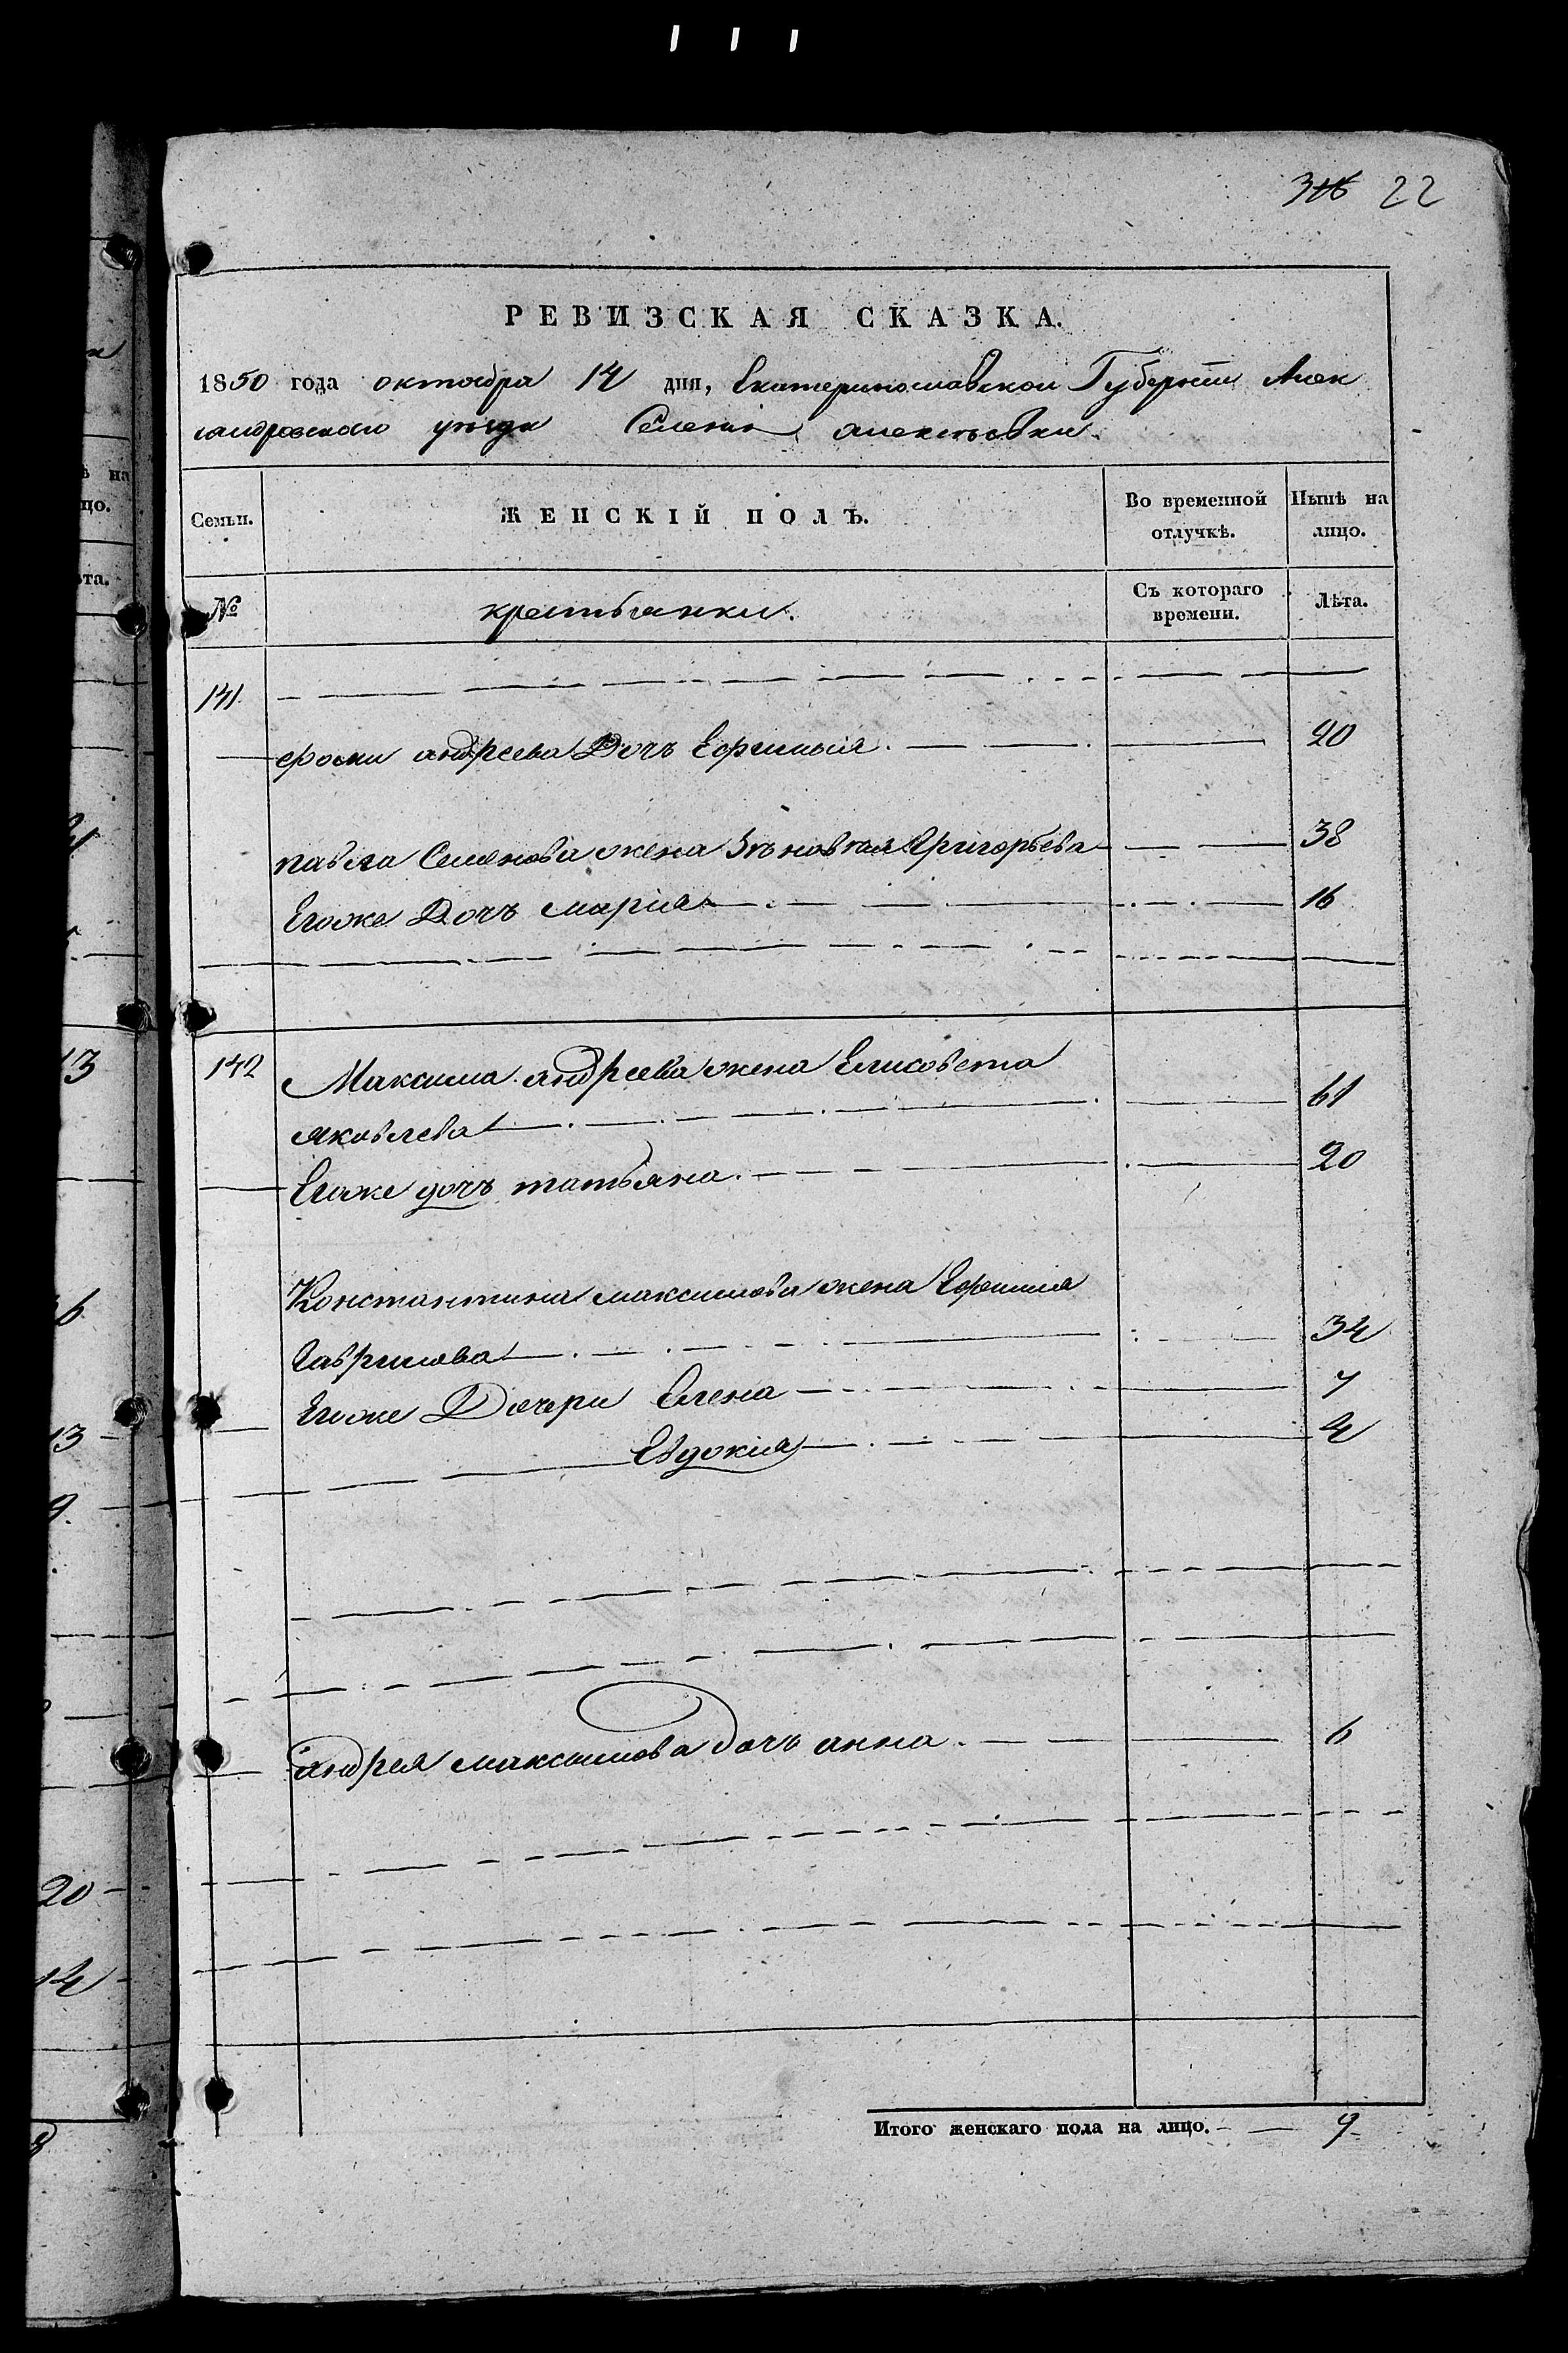 22
РЕВИЗСКАЯ СКАЗКА.
1850 года октября 14 дня, Екатеринославской Губернiи Алек
сандровского уѣзда Селенiя алексѣевки.
Семьи. ЖЕНСКІЙ ПОЛЪ. Во временной отлучкѣ. Нынѣ на лицо.
№ крестьянки. Съ котораго времени. Лѣта.
141
андреева Дочъ Ефимия. 20
павла Семенова жена Зѣновия Григорьева 38
Егоже Дочъ мария 16
142 Максима андреева жена Елисовета
яковлева 61
Егоже дочъ татьяна. 20
Константина максимова жена Ефимия
Гаврилова 34
Егоже Дочери Елена 7
Евдокия 4
андрея максимова дочъ анна. 6
Итого женскаго пола на лицо. 9
на
цо.
та.
13
13
9.
20
14